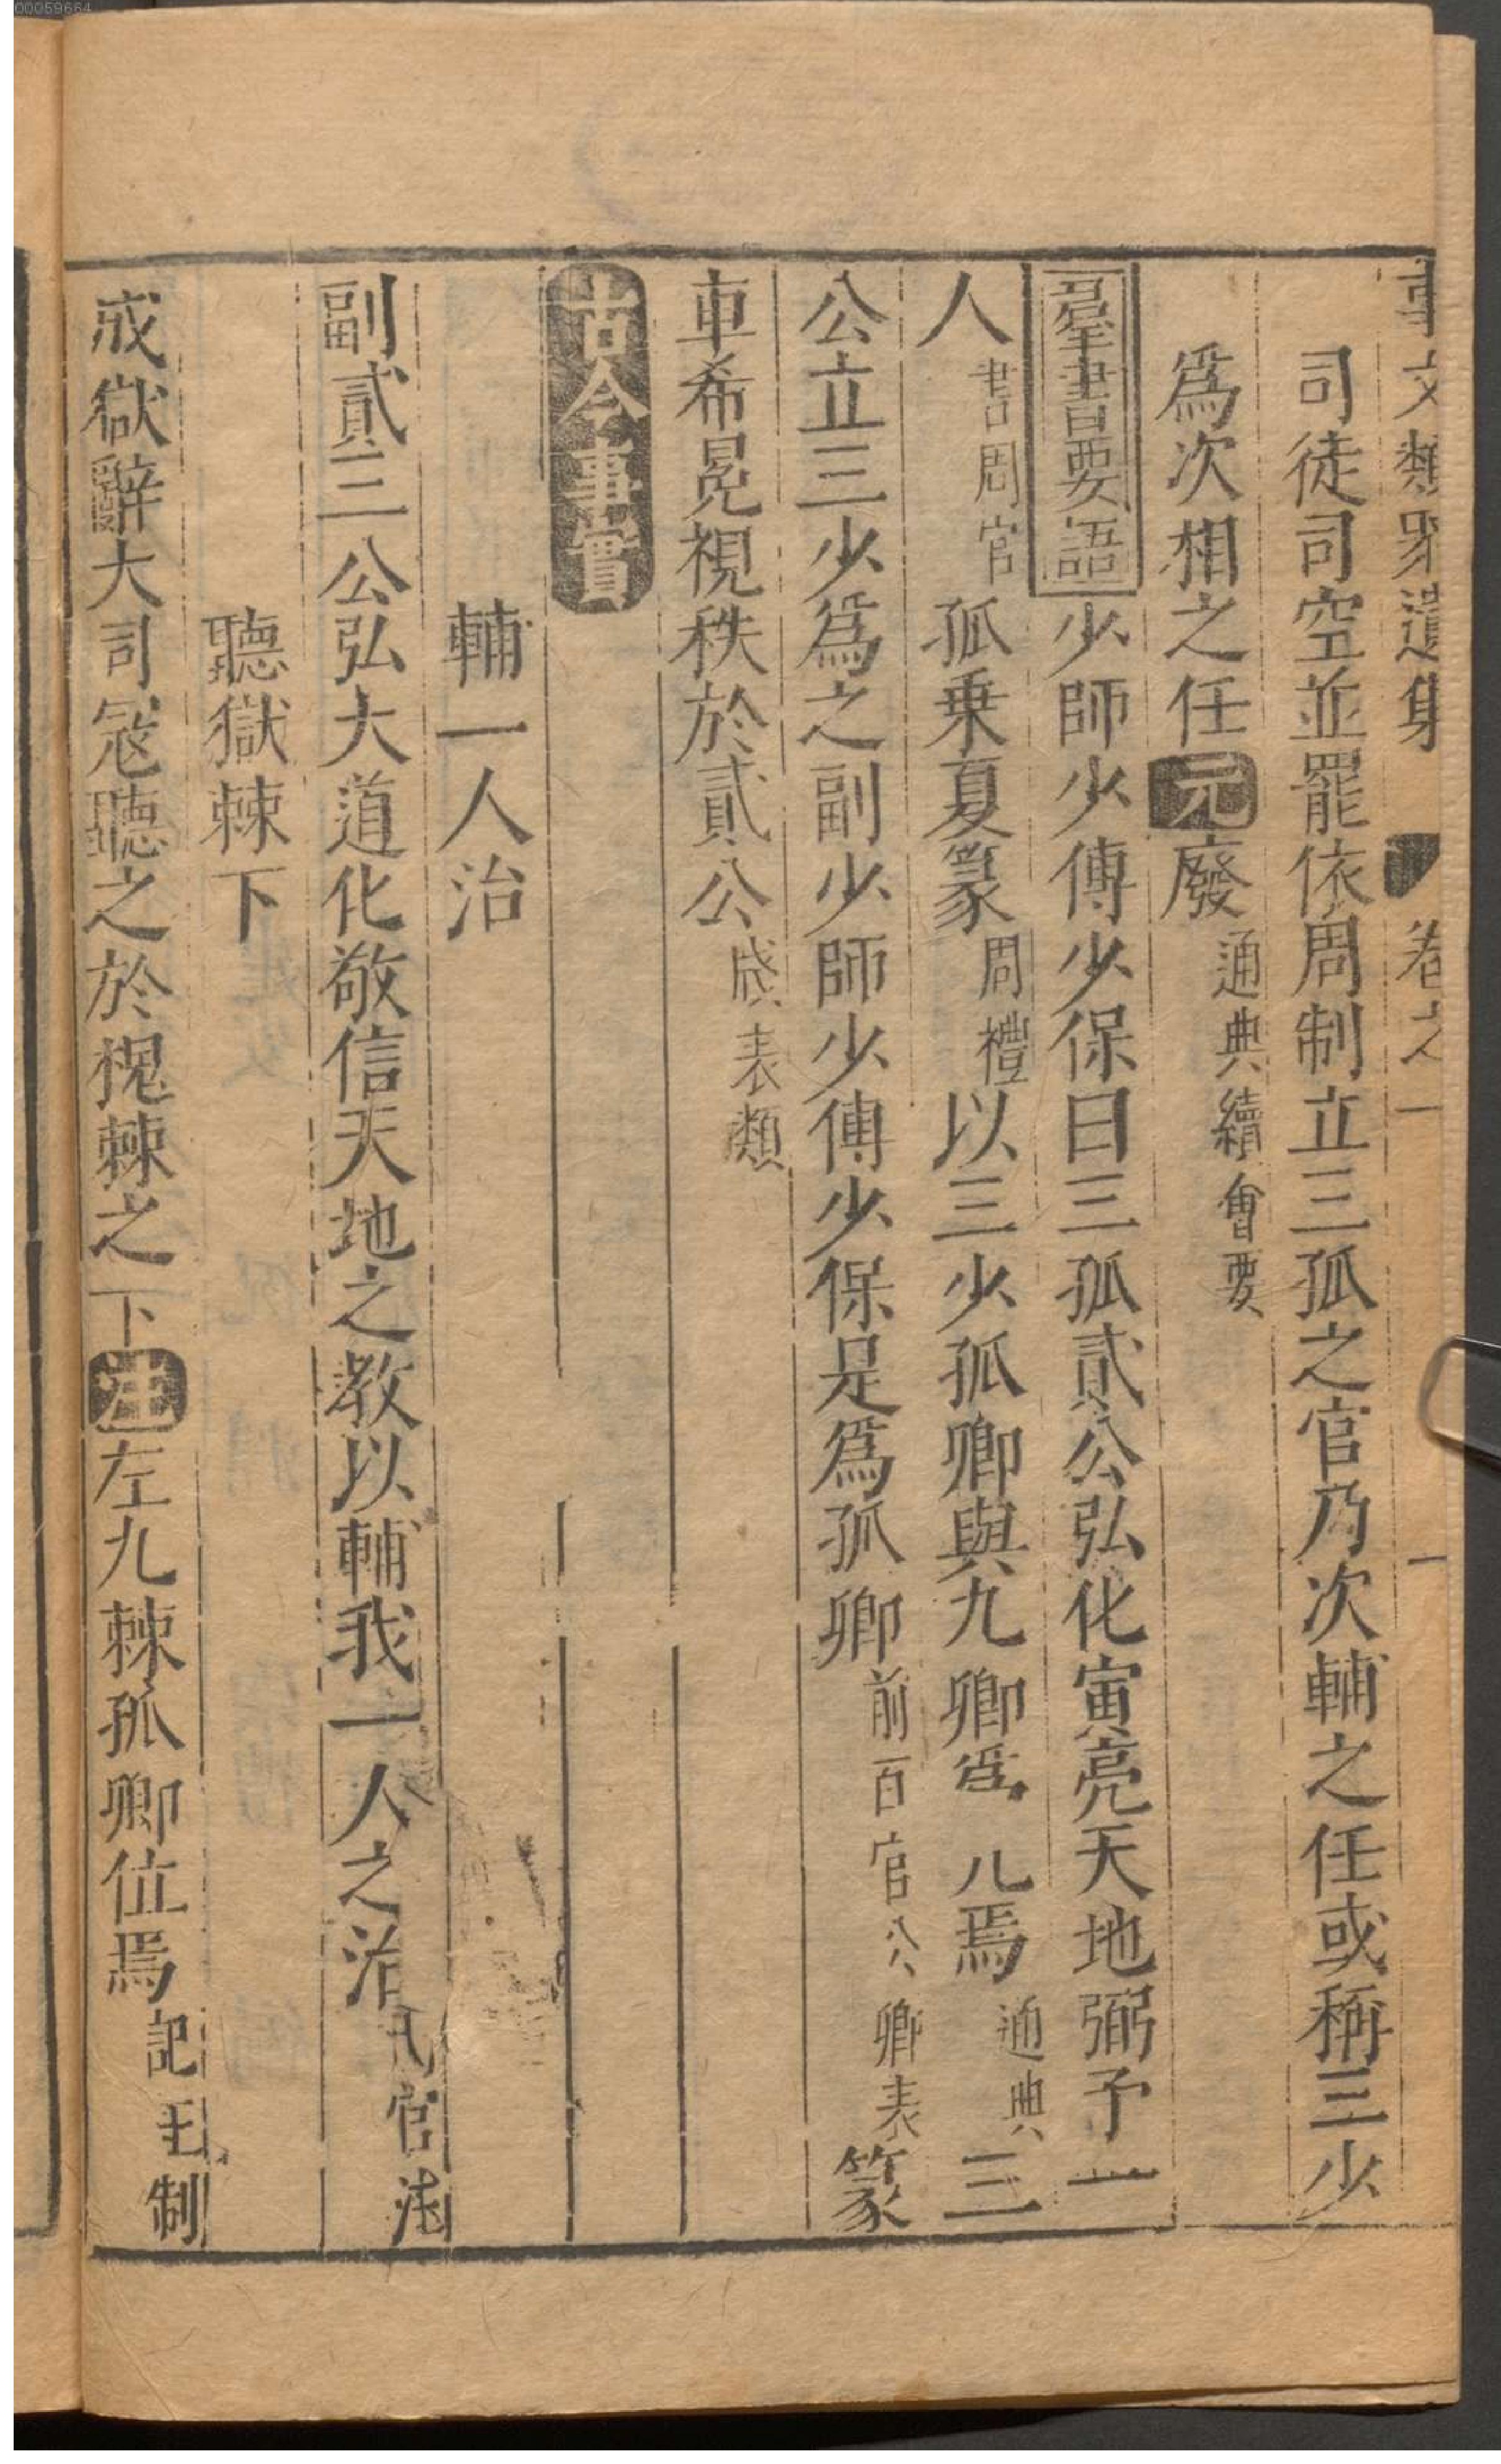 00059664
事文類聚遺集 卷之一 一
司徒司空並罷依周制立三孤之官乃次輔之任或稱三少
爲次相之任元廢通典續會要
羣書要語少師少傅少保曰三孤貳公弘化寅亮天地弼予一
人書周官孤乗夏篆周禮以三少孤卿與九卿爲 焉通典三
公立三少爲之副少師少傅少保是爲孤卿前百官公卿表篆
車希冕視秩於貳公牋表類
古今事實
輔一人治
副貳三公弘大道化敬信天地之教以輔我一人之治 官注
聽獄棘下
成獄辭大司寇聽之於槐棘之下注左九棘孤卿位焉記王制